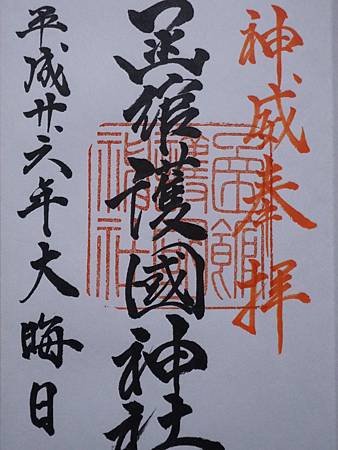 神威奉拝
函館護國神社
平成廿六年大晦日
函館護國神社